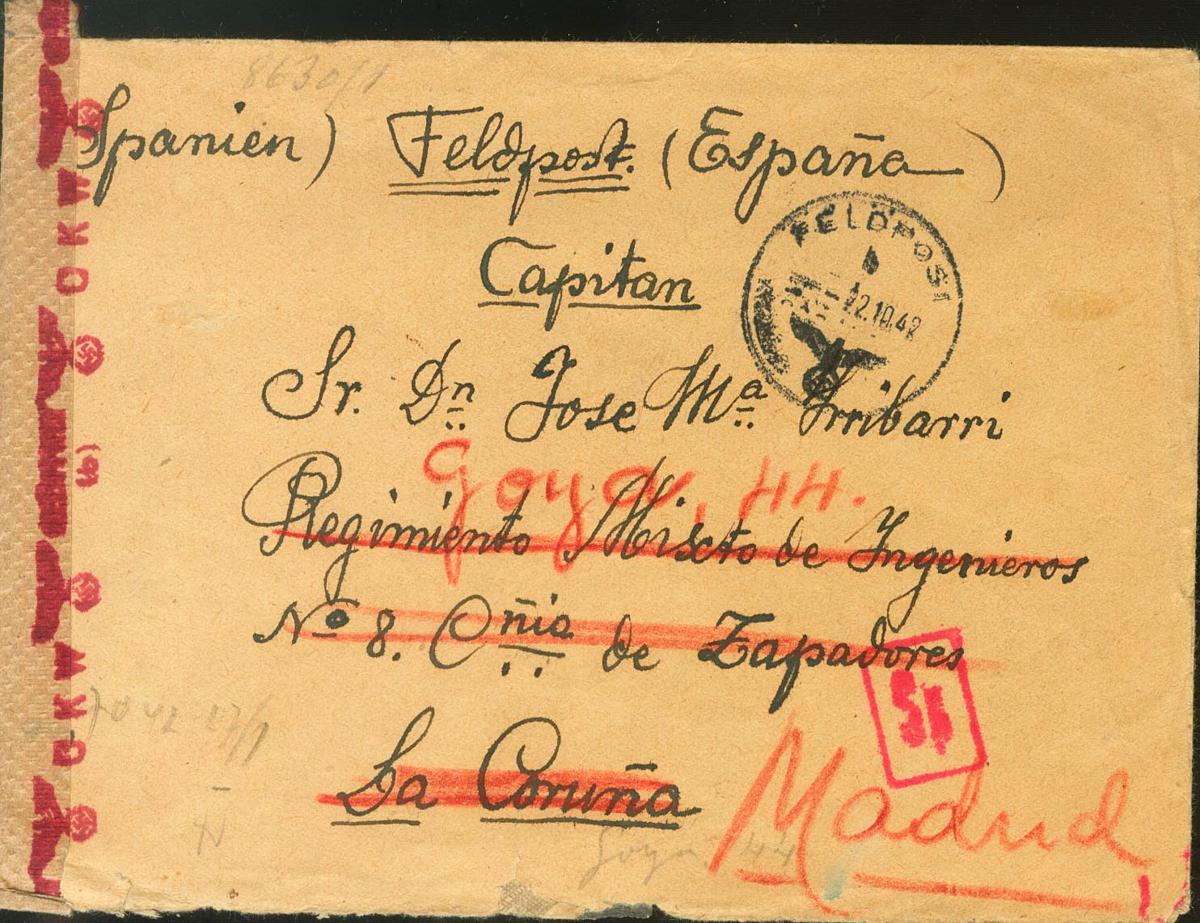 8630/1
Spanien) Feldpost. (España)
FELDPOST
b
22.10.42
Capitan
Sr. Dn Jose Mª Irribarri
Goya, 44.
Regimiento Mixto de Ingenieros
Nº 8. Cñia de Zapadores
La Coruña
Madrid
Goya 44
OKW
(b)
OKW